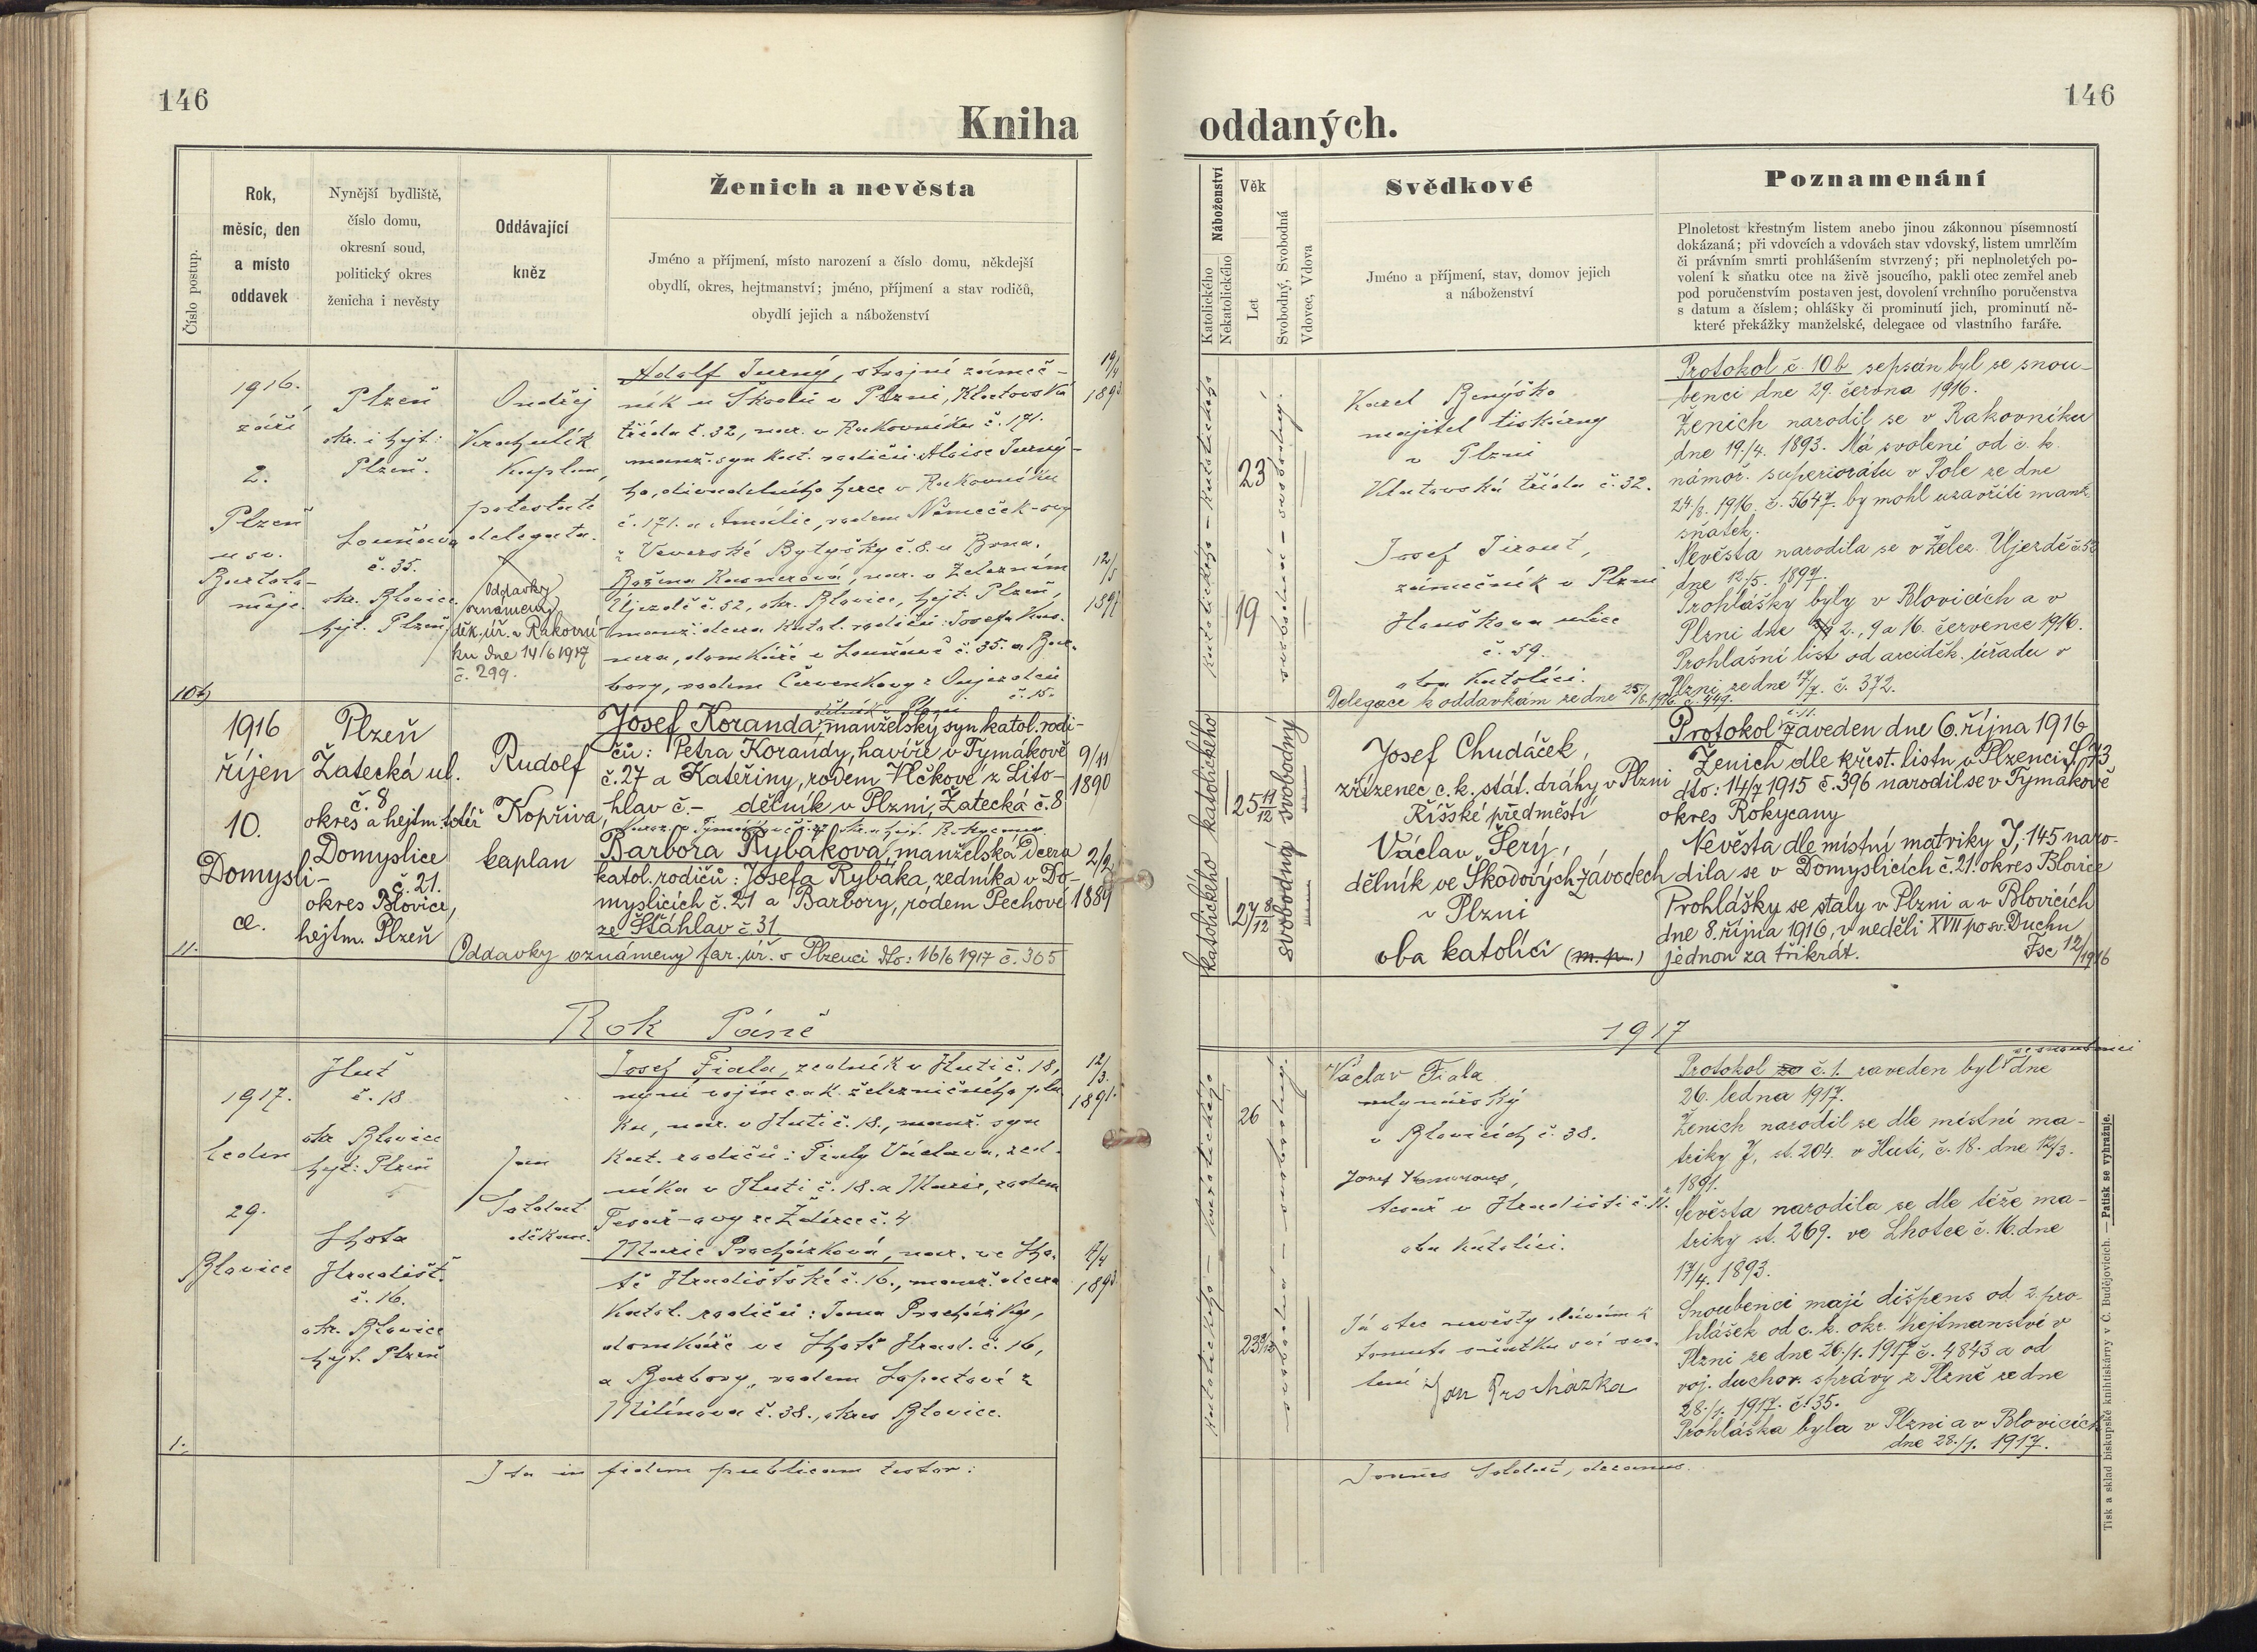 146
Kniha
Číslo postup.
Rok,
měsíc, den
a místo
oddavek
Nynější bydliště,
číslo domu,
okresní soud,
politický okres
ženicha i nevěsty
Oddávající
kněz
Ženich a nevěsta
Jméno a příjmení, místo narození a číslo domu, někdejší
obydlí, okres, hejtmanství; jméno, příjmení a stav rodičů,
obydlí jejich a náboženství
10b
1916.
září
2.
Plzeň
u sv.
Bartolo-
měje.
Plzeň
okr. i hejt:
Plzeň.
Louňová
č. 35.
okr. Blovice
hejt. Plzeň
Ondřej
Kaplan,
potestate
delegata.
Oddavky
oznámeny
děk. úř. v Rakovní-
ku dne 14/6 1917
č. 299.
Adolf Jurný, strojní zámeč-
ník u Škodů v Plzni, Klatovská
třída č. 32, nar. v Rakovníku č. 171.
manž. syn kat. rodičů: Aloise Jurný-
ho, divadelního herce v Rakovníku
č. 171. a Amálie, rodem Němeček-ovy
z Veverské Bytyšky č. 8. u Brna.
19/4
1893
Božena Kasnerová, nar. v Železném
Újezdě č. 52, okr. Blovice, hejt. Plzeň,
manž. dcera katol. rodičů: Josefa Kas-
nera, domkáře v Louňové č. 35. a Bar-
bory, rodem Červenkovy z Oujezdce
č. 15.
12/5
1897
11.
1916
říjen
10.
Domysli-
ce.
Plzeň
Žatecká ul.
č. 8
okres a hejtm. totéž
Domyslice
č. 21.
okres Blovice,
hejtm. Plzeň
Rudolf
Kopřiva,
kaplan
dělník v Plzni
Josef Koranda, manželský syn katol. rodi-
čů: Petra Korandy, havíře v Tymákově
č. 27 a Kateřiny, rodem Vlčkové z Lito-
hlav č.– dělník v Plzni, Žatecká č. 8
9/11
1890
Barbora Rybáková, manželská dcera
katol. rodičů: Josefa Rybáka, zedníka v Do-
myslicích č. 21 a Barbory, rodem Pechové
ze Šťáhlav č 31
2/2
1889
Oddavky oznámeny far. úř. v Plzenci dto: 16/6 1917 č. 305
Rok Páně
1.
1917.
leden
29.
Blovice
Huť
č. 18
okr. Blovice
hejt: Plzeň
Lhota
Hradišt.
č. 16.
okr. Blovice
hejt. Plzeň
Jan
Soldát
děkan.
Josef Fiala, zedník v Huti č. 18,
nyní vojín c. a k. železničního plu-
ku, nar. v Huti č. 18., manž. syn
kat. rodičů: Fialy Václava, zed-
níka v Huti č. 18. a Marie, rodem
Tesař-ovy ze Ždírce č. 4
12/3.
1891.
Marie Procházková, nar. ve Lho-
tě Hradištské č. 16., manž. dcera
katol. rodičů: Jana Procházky,
domkáře ve Lhotě Hrad. č. 16,
a Barbory, rodem Lopatové z
Milínova č. 38., okres Blovice.
1893
Ita in fidem publicam testor:
146
oddaných.
Náboženství
Katolického
Nekatolického
Věk
Let
Svobodný, Svobodná
Vdovec, Vdova
Svědkové
Jméno a příjmení, stav, domov jejich
a náboženství
Poznamenání
Plnoletost křestným listem anebo jinou zákonnou písemností
dokázaná; při vdovcích a vdovách stav vdovský, listem umrlčím
či právním smrti prohlášením stvrzený; při neplnoletých po-
volení k sňatku otce na živě jsoucího, pakli otec zemřel aneb
pod poručenstvím postaven jest, dovolení vrchního poručenstva
s datum a číslem; ohlášky či prominutí jich, prominutí ně-
které překážky manželské, delegace od vlastního faráře.
katolického – katolického
23
19
svobodná – svobodný.
Karel Benýško
majitel tiskárny
v Plzni
Klatovská třída č. 32.
Josef Jirout,
zámečník v Plzni
Houškova ulice
č. 59.
oba katolíci.
Delegace k oddavkám ze dne 25/8. 1916 č. 449.
Protokol č. 10b sepsán byl se snou-
benci dne 29. června 1916.
Ženich narodil se v Rakovníku
dne 19./4. 1893. Má svolení od c. k.
námoř. superiorátu v Pole ze dne
24./8. 1916. č. 5647. by mohl uzavříti manž.
sňatek.
Nevěsta narodila se v Želez. Újezdě č. 52
dne 12./5. 1897.
Prohlášky byly v Blovicích a v
Plzni dne 2., 9 a 16. července 1916.
Prohlašní list od arciděk. úřadu v
Plzni ze dne 17/7. č. 372.
katolického katolického
25 11/12
27 8/12
svobodná svobodný
Josef Chudáček,
zřízenec c. k. stát. dráhy v Plzni
Říšské předměstí
Václav Šerý,
dělník ve Škodových závodech
v Plzni
oba katolíci (m. p.)
č. 11.
Protokol zaveden dne 6. října 1916
Ženich dle křest. listu v Plzenci S, 73
dto: 14/7 1915 č. 396 narodil se v Tymákově
okres Rokycany
Nevěsta dle místní matriky J, 145 naro-
dila se v Domyslicích č. 21. okres Blovice
Prohlášky se staly v Plzni a v Blovicích
dne 8. října 1916, v neděli XVII po sv. Duchu
jednou za třikrát.
1917
katolického – katolického
26
svobodná – svobodný.
Václav Fiala
mlynářský
v Blovicích č. 38.
tesař v Hradišti č. 11.
oba katolíci.
Já otec nevěsty dávám k
tomuto sňatku své svo-
lení
Jan Procházka
Protokol č. 1. zaveden byl se snoubenci dne
26. ledna 1917.
Ženich narodil se dle místní ma-
triky J, st. 204. v Huti, č. 18. dne 12/3.
1891.
Nevěsta narodila se dle téže ma-
triky st. 269. ve Lhotce č. 16. dne
17/4. 1893.
Snoubenci mají dišpens od 2 pro-
hlášek od c. k. okr. hejtmanství v
Plzni ze dne 26./1. 1917 č. 4843 a od
voj. duchov. správy z Plzně ze dne
28./1. 1917. č. 35.
Prohláška byla v Plzni a v Blovicích
dne 28./1. 1917.
Joannes Soldát, decanus.
Tisk a sklad biskupské knihtiskárny v Č. Budějovicích. — Patisk se vyhražuje.